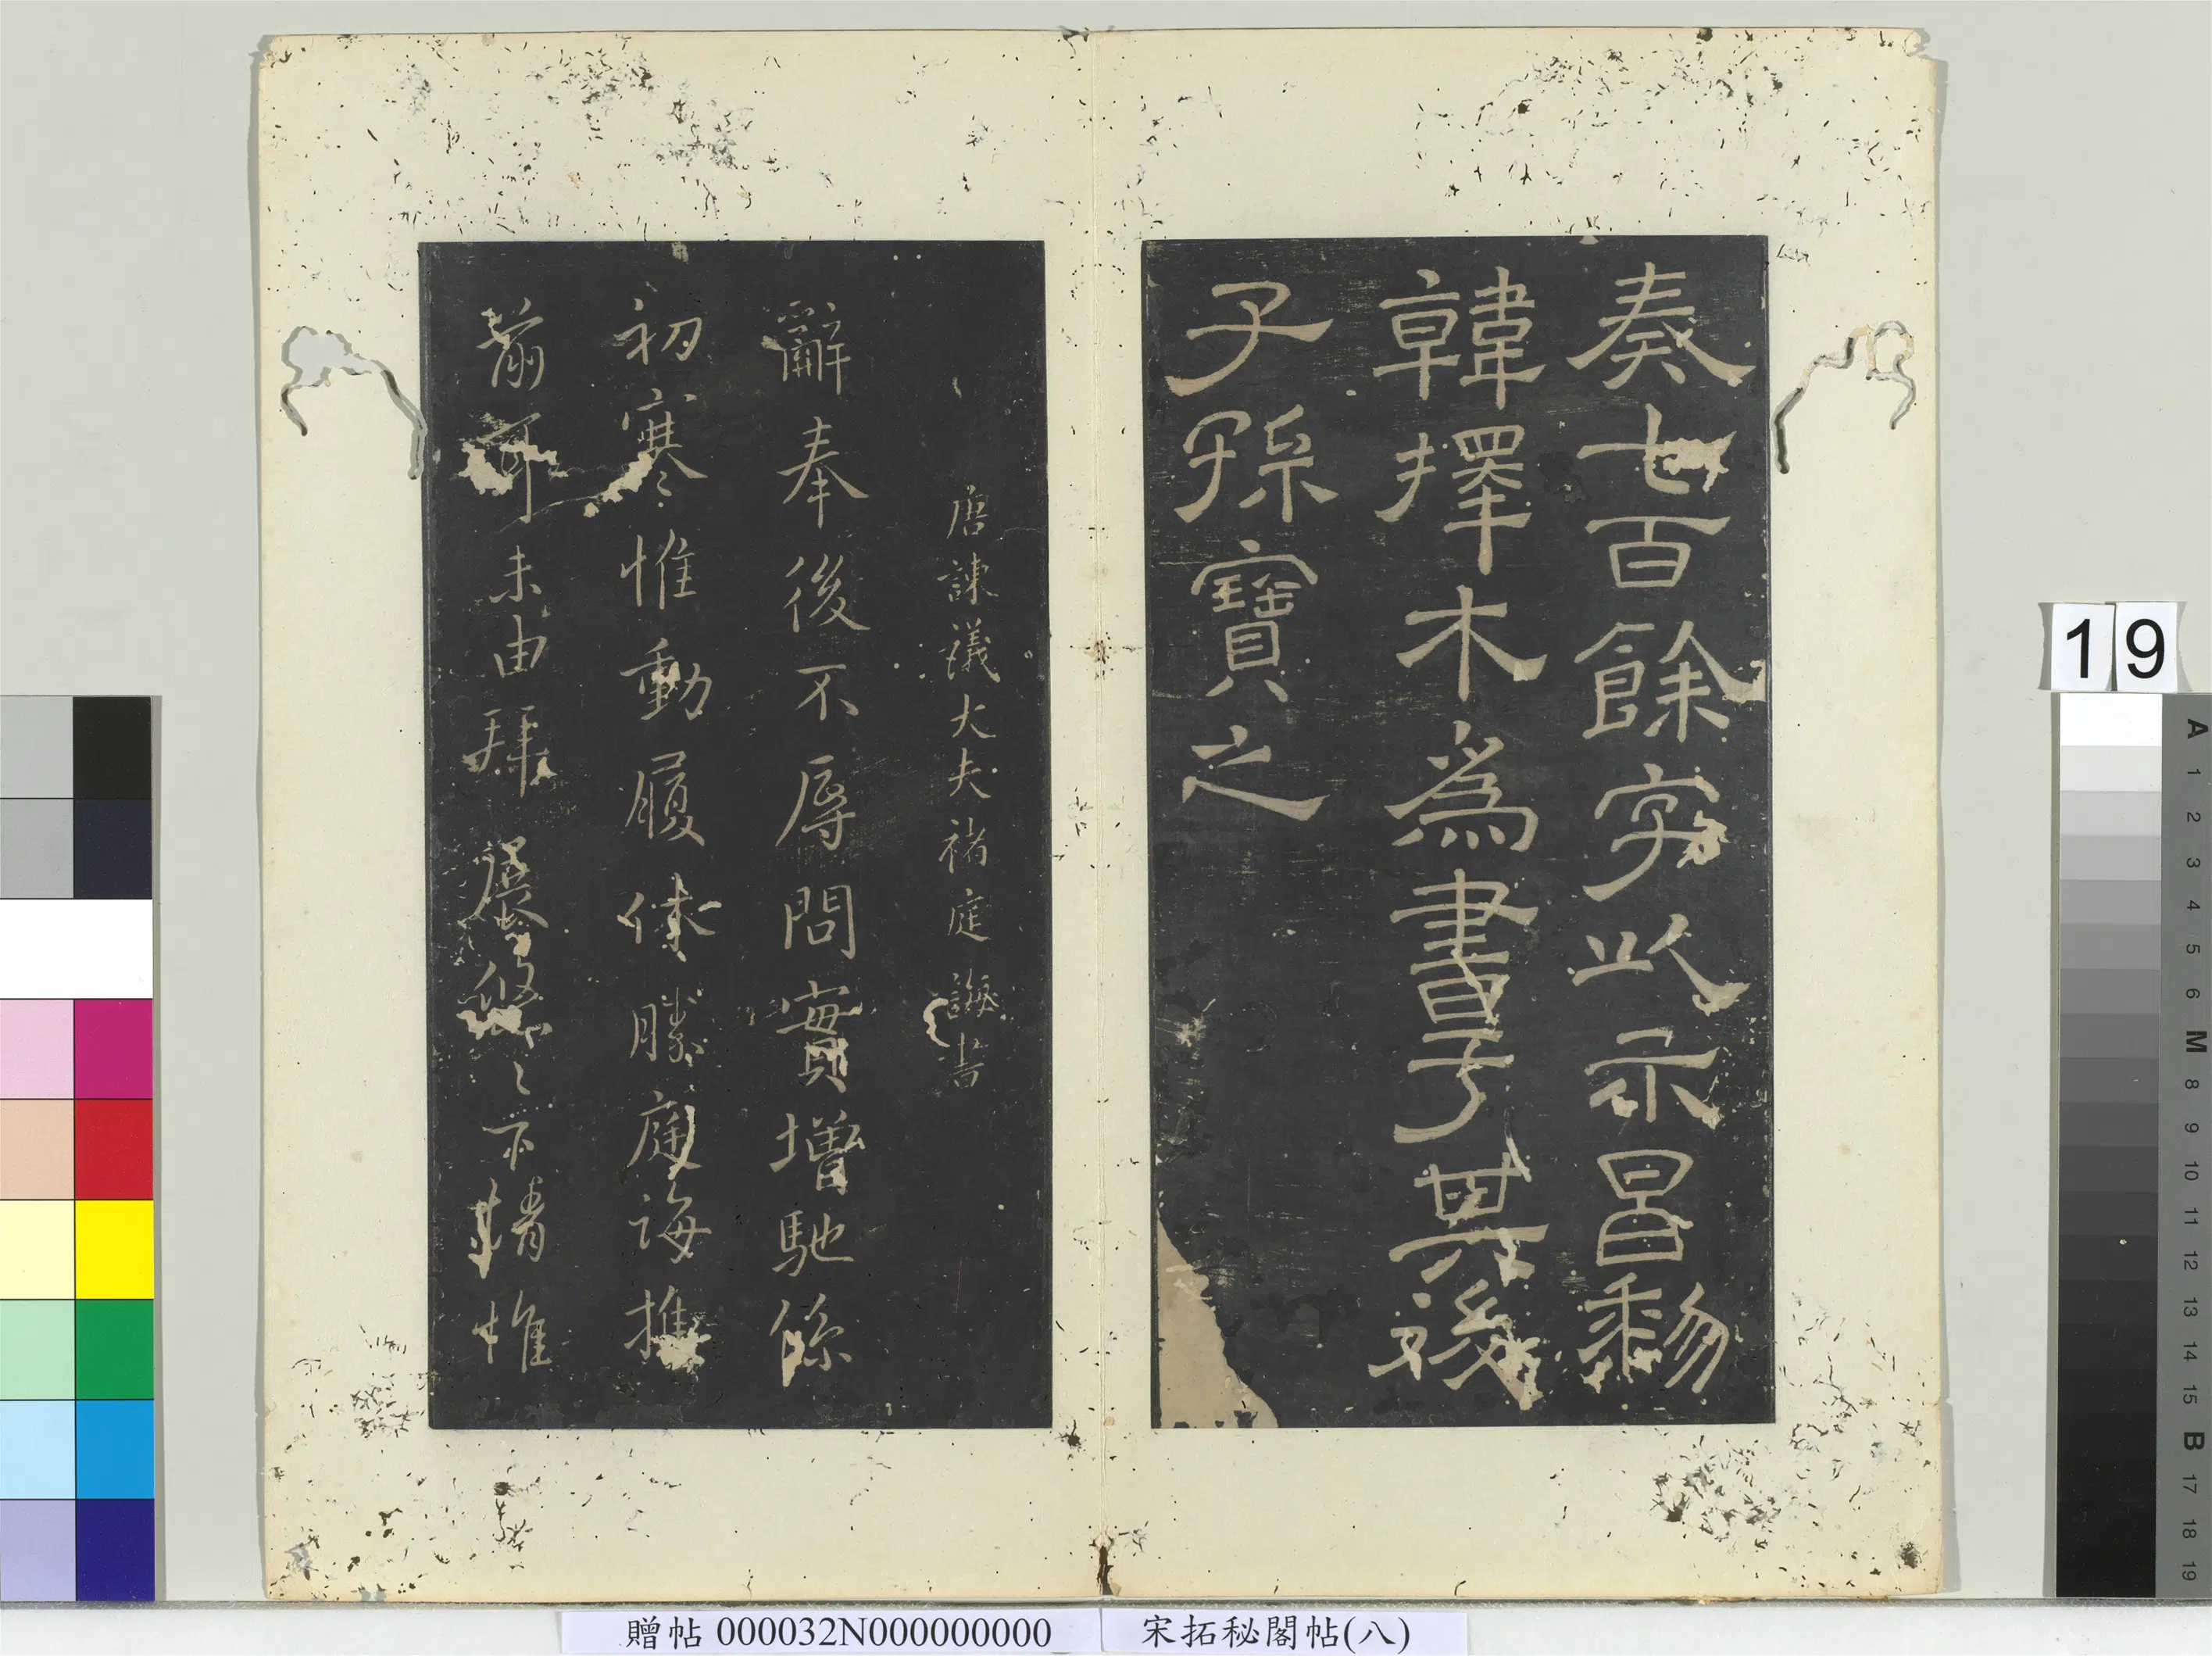 奏七百餘字以示昌黎
韓擇木為書予其後
子孫寶之
唐諫議大夫褚庭誨書
辭奉後不辱問實增馳係
初寒惟動履休勝庭誨推
前可未由拜展悠〻不精惟
19
贈帖 000032N000000000
宋拓秘閣帖(八)
A
1
2
3
4
5
6
M
8
9
10
11
12
13
14
15
B
17
18
19